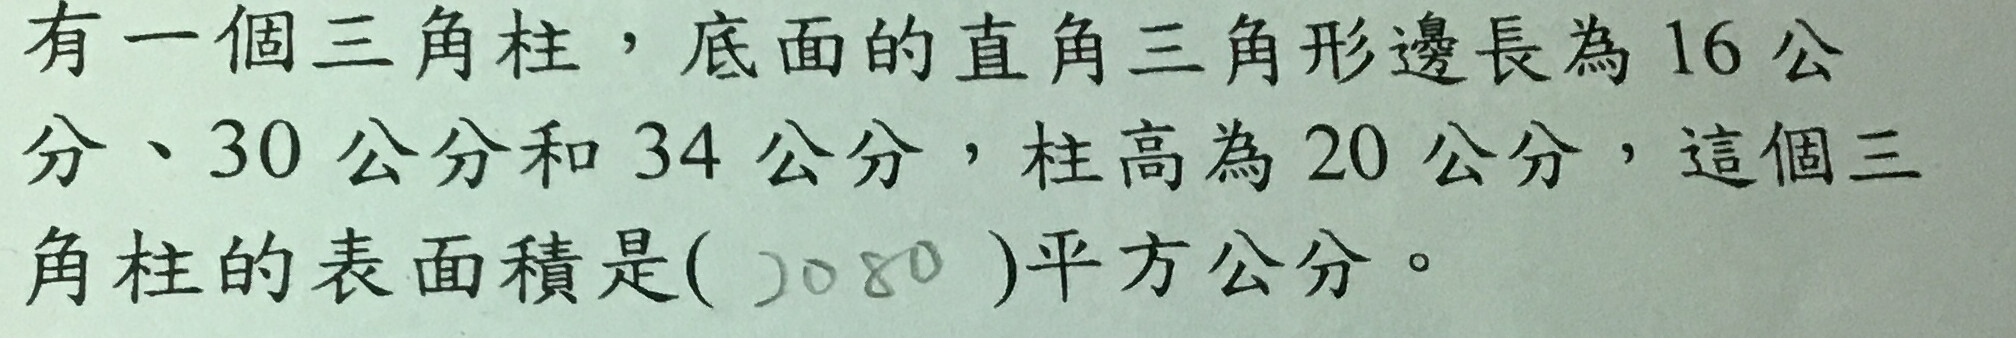 有一個三角柱，底面的直角三角形邊長為 16 公
分、30 公分和 34 公分，柱高為 20 公分，這個三
角柱的表面積是( 2080 )平方公分。